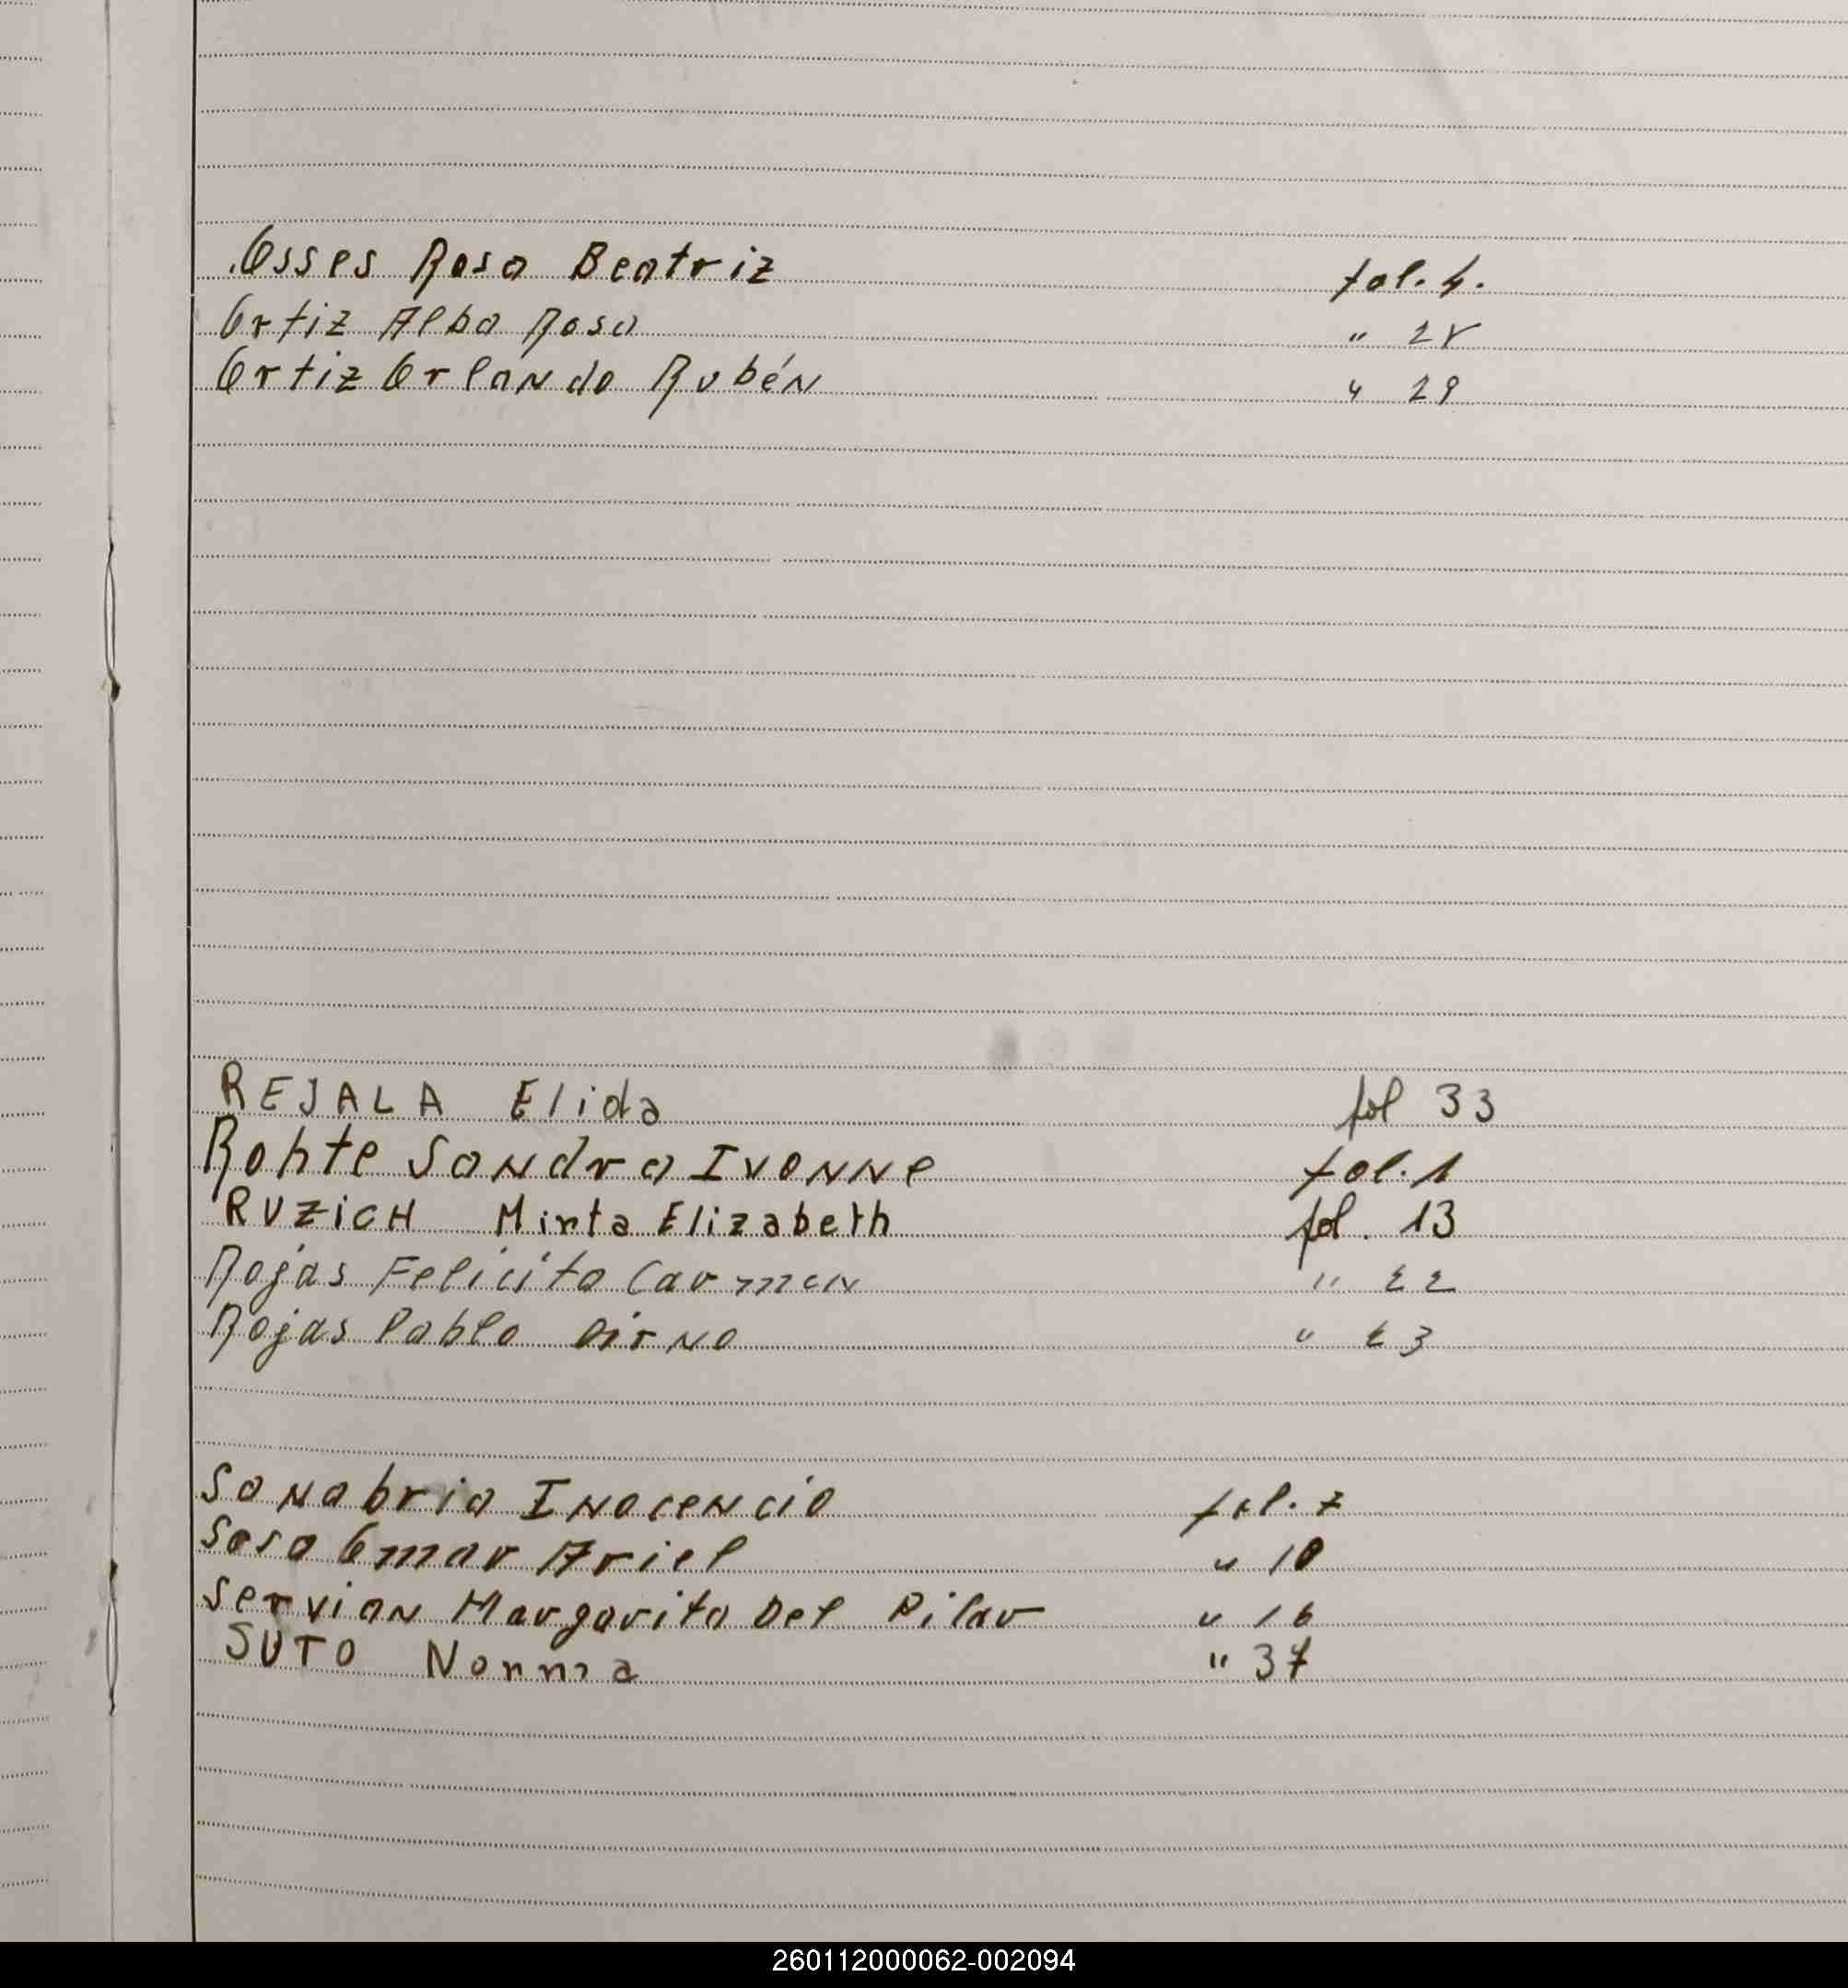 Osses Rosa Beatriz fol. 4.
Ortiz Alba Rosa " 28
Ortiz Orlando Rubén " 29
REJALA Elida fol 33
Rohte Sandra Ivonne fol. 1
RUZICH Mirta Elizabeth fol. 13
Rojas Felicita Carmen " 22
Rojas Pablo " 23
Sanabria Inocencio fol. 7
Sosa Omar Ariel " 10
Servian Margarita Del Pilar " 16
SUTO Norma " 37
260112000062-002094